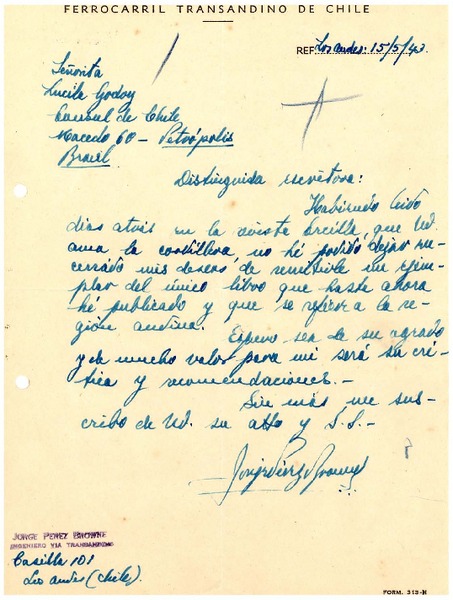 FERROCARRIL TRANSANDINO DE CHILE
REF. Los Andes: 15/5/43.
Señorita
Lucila Godoy
Consul de Chile
Macedo 60 - Petrópolis
Brasil
Distinguida escritora:
Habiendo leido
dias atrás en la revista Ercilla, que Ud.
ama la cordillera, no hé podido dejar en-
cerrado mis deseos de remitirle un ejem-
plar del único libro que hasta ahora
hé publicado y que se refiere a la re-
gión andina. Espero sea de su agrado
y de mucho valor para mi será su crí-
tica y recomendaciones.-
Sin más me sus-
cribo de Ud. su atto y S.S.-
Jorge Pérez Browne
JORGE PEREZ BROWNE
INGENIERO VIA TRANSANDINO
Casilla 101
Los Andes (Chile).
FORM. 313-H